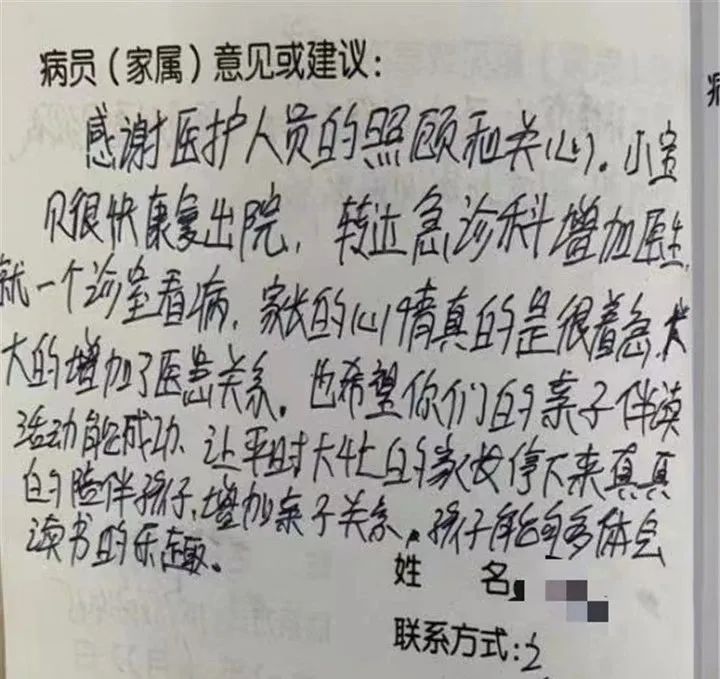 病员（家属）意见或建议：
感谢医护人员的照顾和关心。小宝
贝很快康复出院，转达急诊科增加医生，
就一个诊室看病，家长的心情真的是很着急，大
大的增加了医患关系。也希望你们的亲子伴读
活动能成功、让平时大忙的家长停下来真真
的陪伴孩子，增加亲子关系。孩子能多体会
读书的乐趣。
姓 名
联系方式：